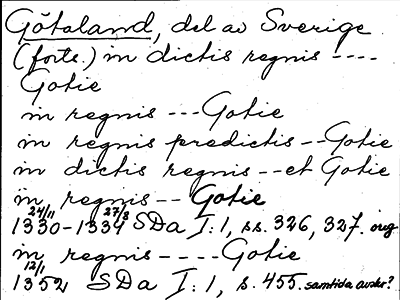 Götaland, del av Sverige
(forts.) in dictis regnis ----
Gotie
in regnis --- Gotie
in regnis predictis -- Gotie
in dictis regnis -- et Gotie
in regnis -- Gotie
24/11 27/3
1330-1334 SDa I:1, ss. 326, 327. orig
in regnis ---- Gotie
12/1
1352 SDa I:1, s. 455. samtida avskr?